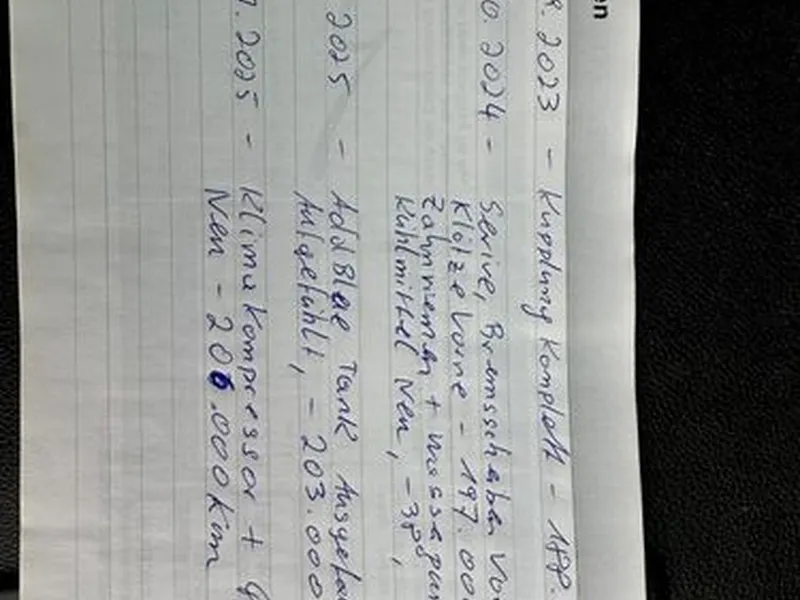 en
. 2023 - Kupplung Komplett - 188.
0. 2024 - Serive, Bremsscheben Vo
Klötze Vorne - 197.000
Zahnriemen + Wassapum
Kühlmittel Neu, -38°,
2025 - AddBlae Tank Ausgeta
Aufgefühlt, - 203.000
. 2025 - Klima Kompressor +
Neu - 206.000 Km